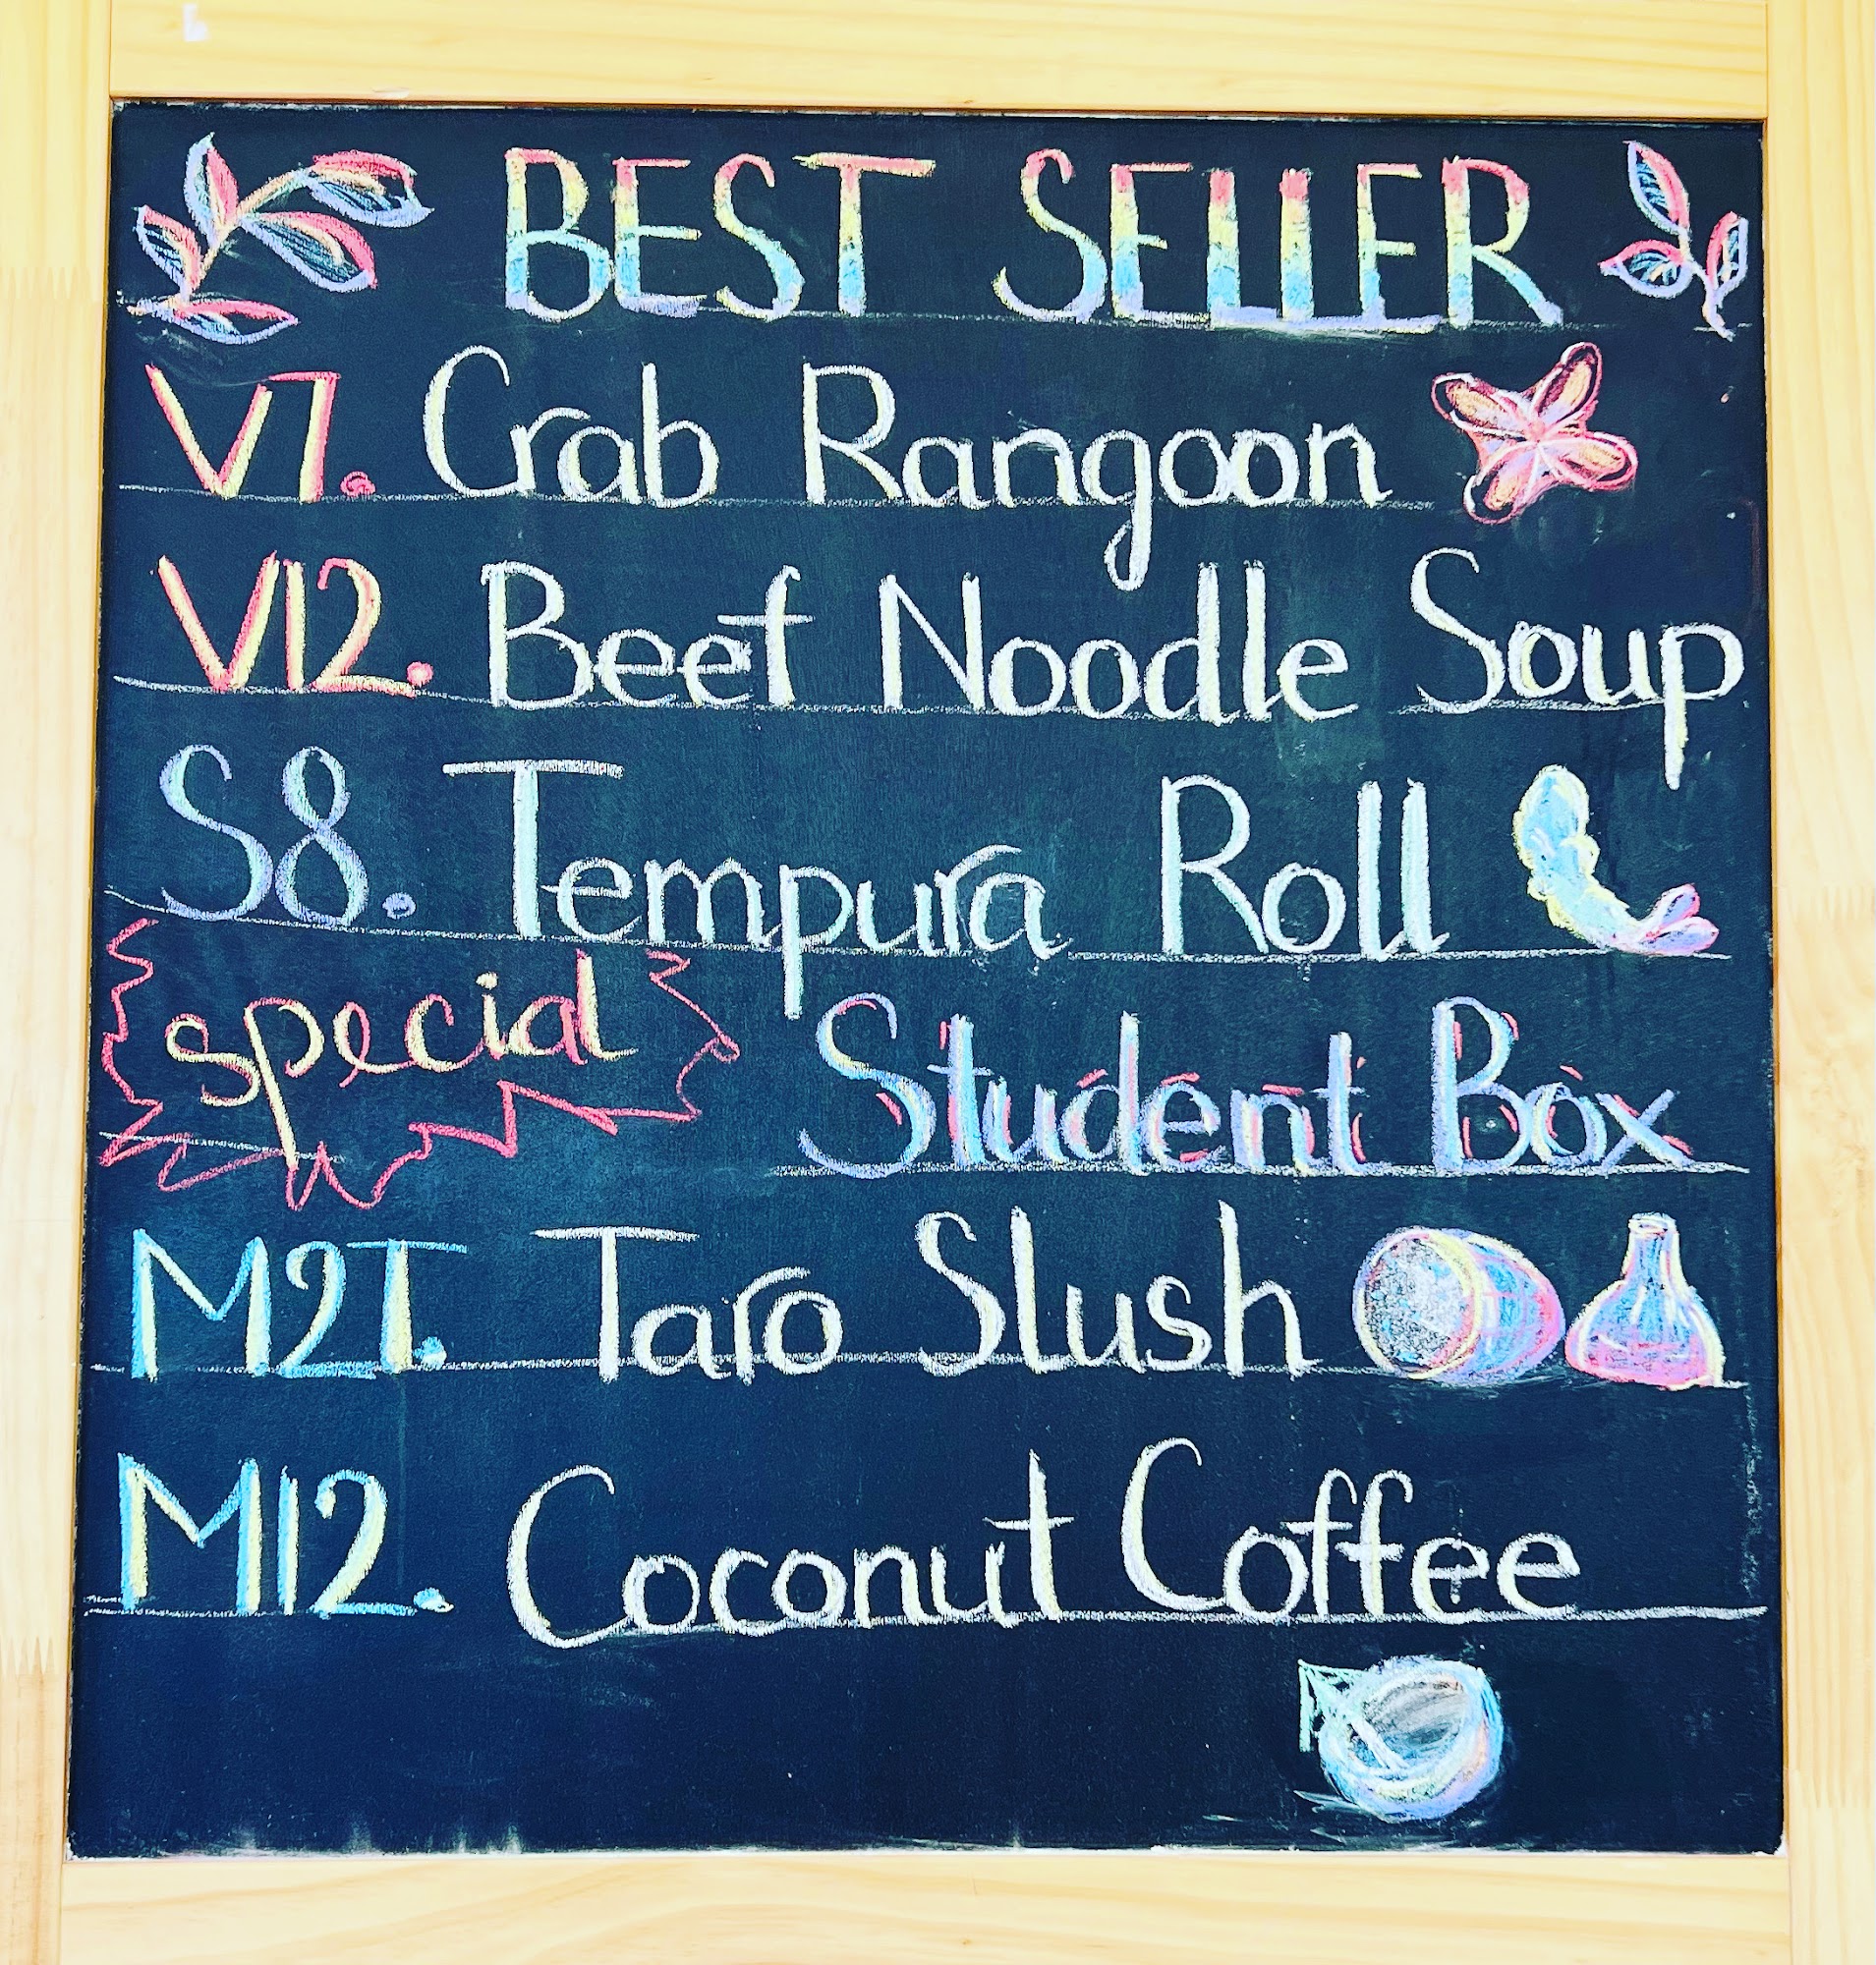 BEST SELLER
V7. Crab Rangoon
V12. Beef Noodle Soup
S8. Tempura Roll
special Student Box
M2T. Taro Slush
M12. Coconut Coffee